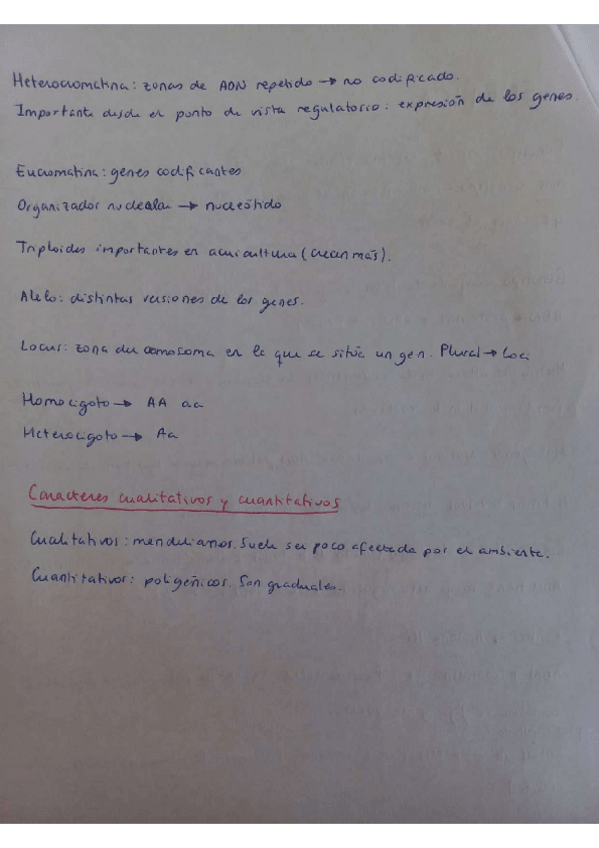 Heterocromatina: zonas de ADN repetido → no codificado.
Importante desde el punto de vista regulatorio: expresión de los genes.
Eucromatina: genes codificantes
Organizador nucleolar → nucleótido
Triploides importantes en acuicultura (crecen más).
Alelo: distintas versiones de los genes.
Locus: zona del cromosoma en la que se sitúa un gen. Plural → Loci
Homocigoto → AA aa
Heterocigoto → Aa
Caracteres cualitativos y cuantitativos
Cualitativos: mendelianos. Suele ser poco afectada por el ambiente.
Cuantitativos: poligénicos. Son graduales.